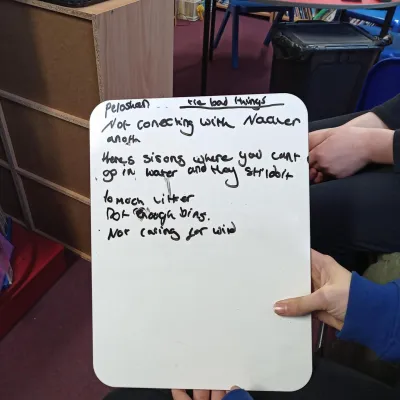 Peloshen ... the bad things
Not conecting with Nacher
anoth
Heres sisons where you cant
go in water and they still do it
to much Litter
Not enough bins.
Not caring for wild